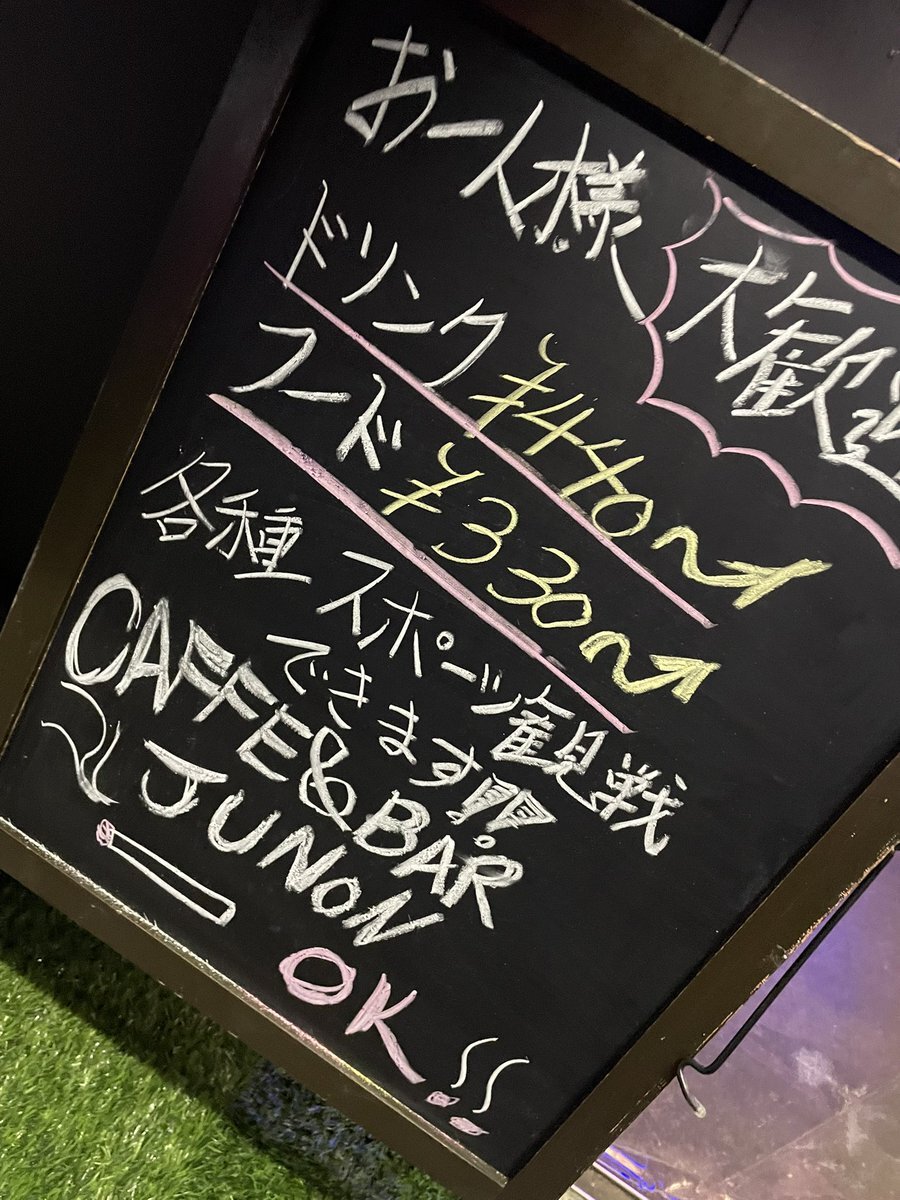 お一人様 大歓迎
ドリンク ¥440〜
フード ¥330〜
各種 スポーツ観戦
できます!!!
CAFFE&BAR
JUNON
OK!!